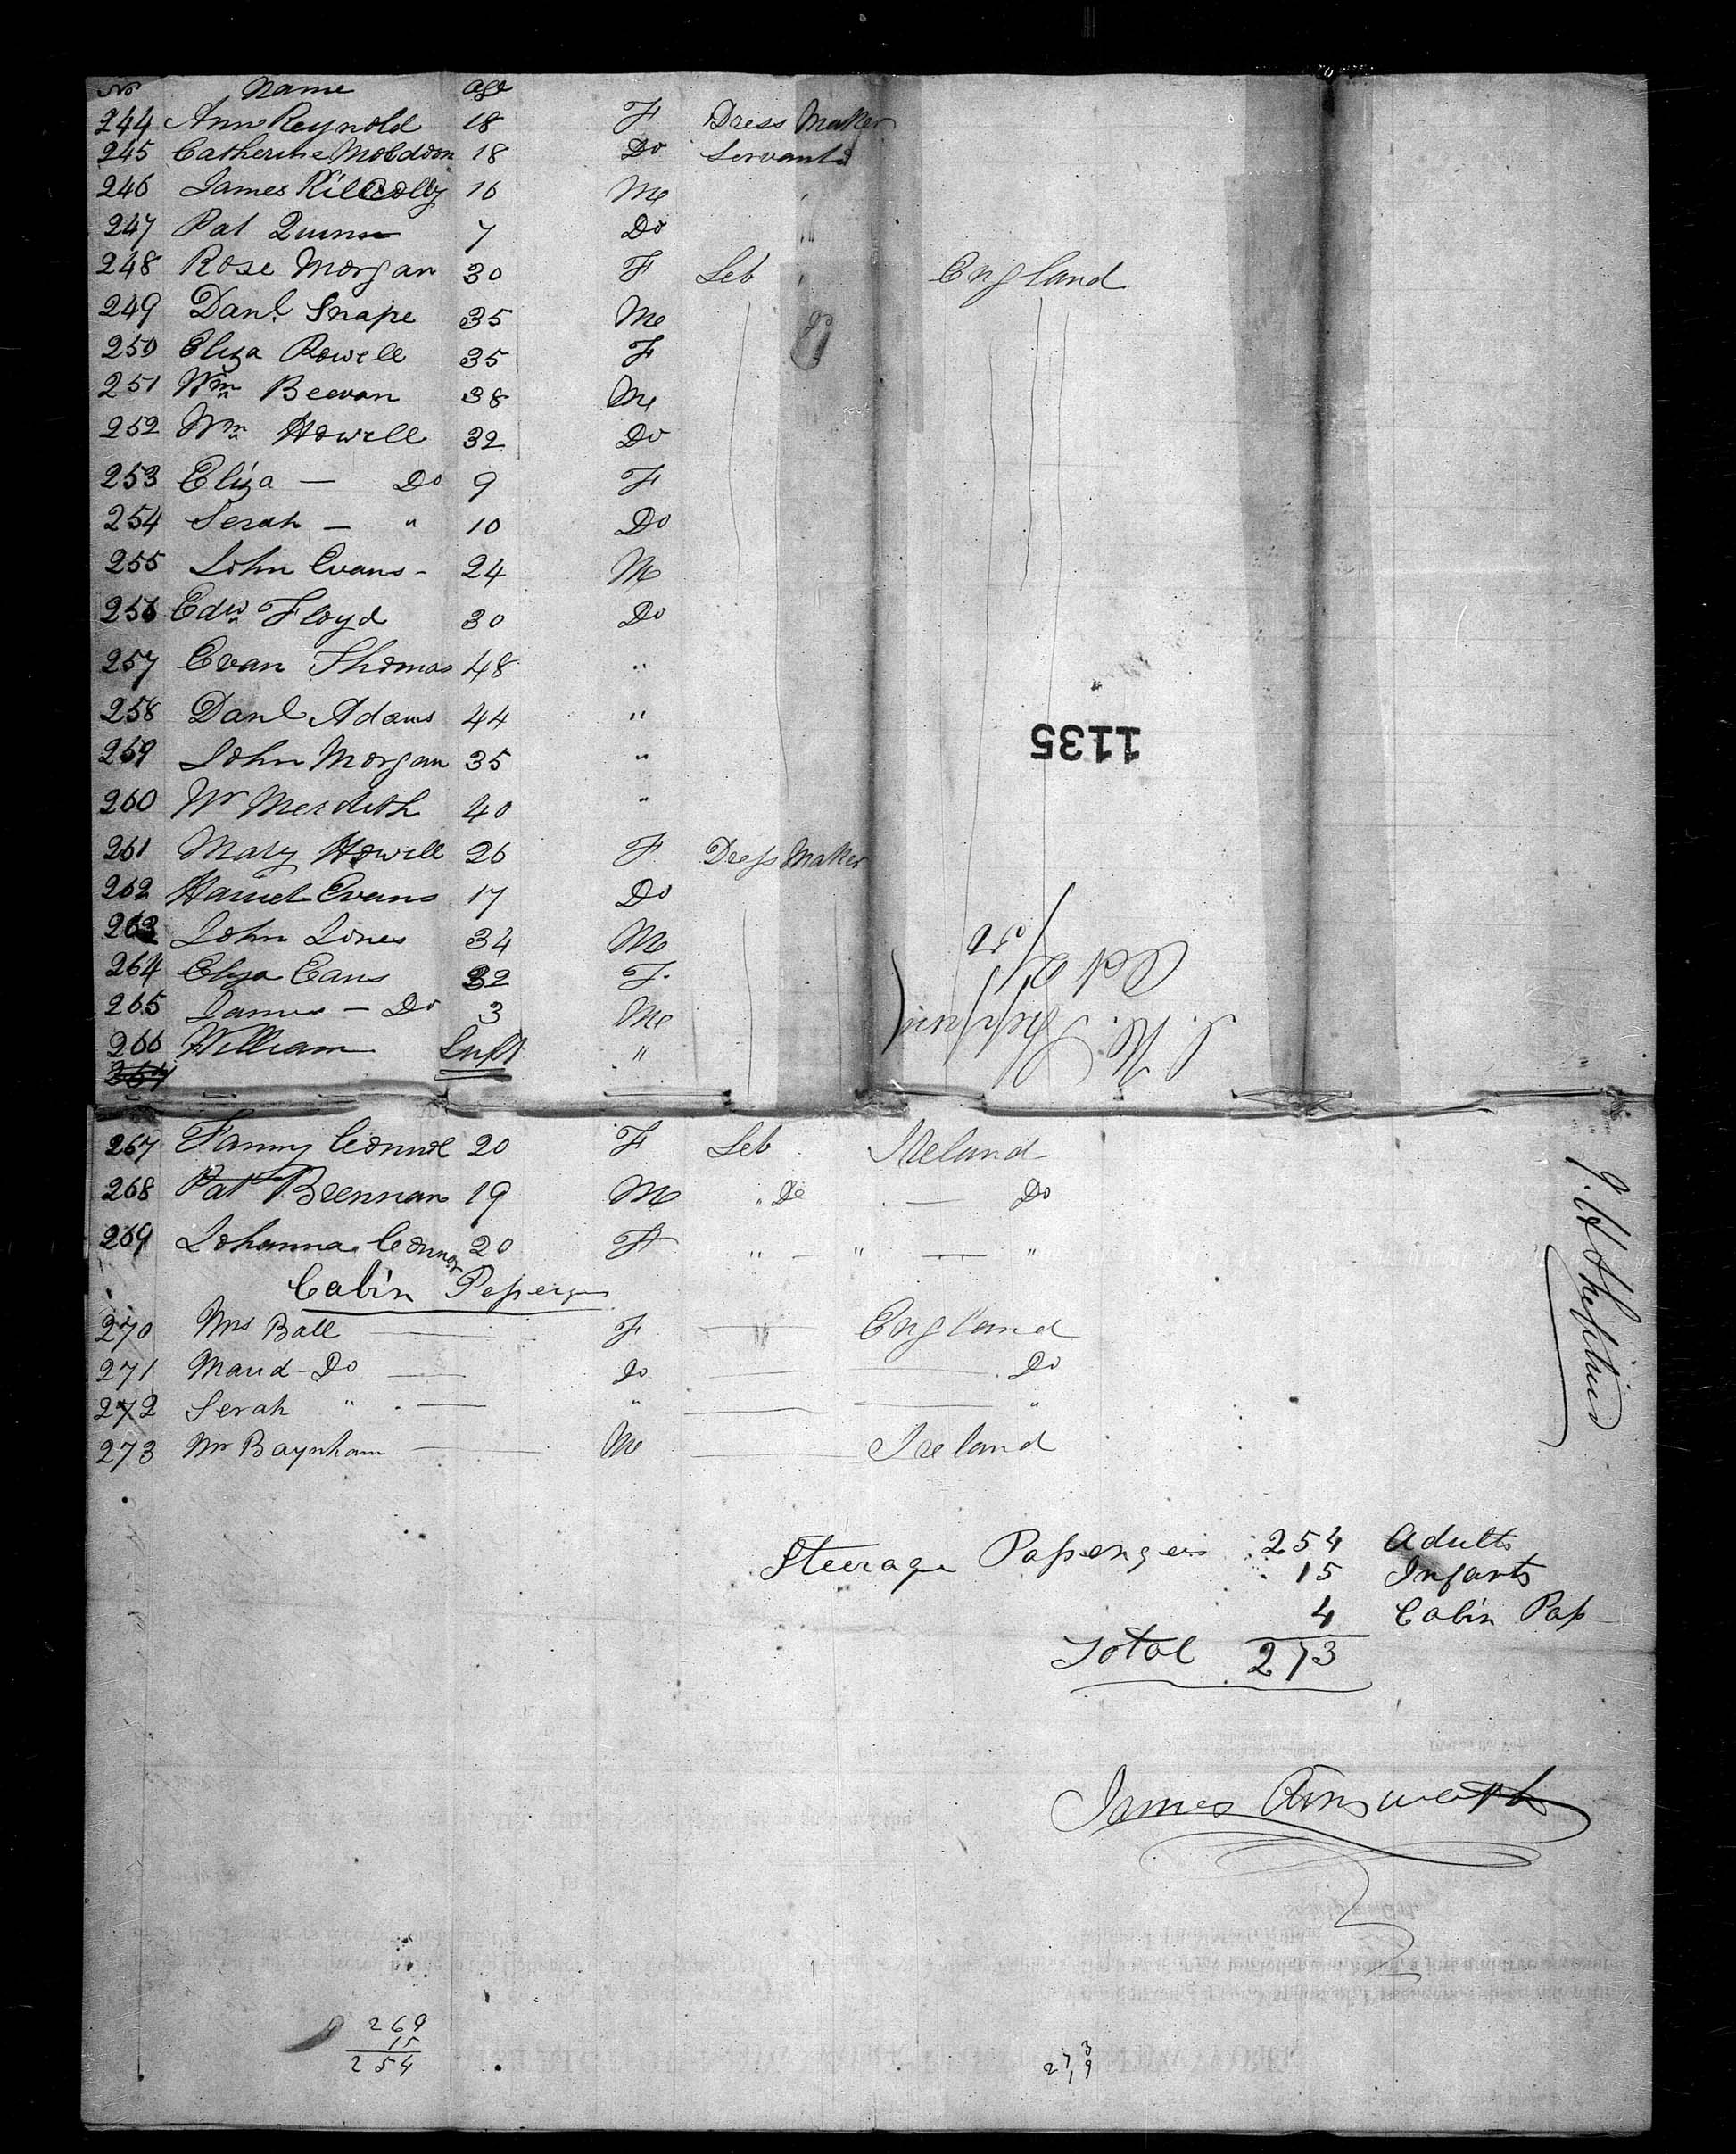 No Name age
244 Ann Reynold 18 F Dress Maker
245 Catherine 18 Do Servant
246 James 16 M
247 Pat Quinn 7 Do "
248 Rose Morgan 30 F Leb " England
249 Danl. Snape 35 M
250 Eliza Rowell 35 F
251 Wm Beevan 38 M
252 Wm Howell 32 Do
253 Eliza — Do 9 F
254 Serah — " 10 Do
255 John Evans - 24 M
256 Edw Floyd 30 Do
257 Evan Thomas 48 "
258 Danl Adams 44 "
259 John Morgan 35 "
260 Wm Merdith 40 "
261 Mary Howell 26 F Dress Maker
262 Evans 17 Do
263 John Jones 34 M
264 Eliza 32 F
265 James - Do 3 M
266 William Inft "
267
1135
267 Fanny 20 F Leb Ireland
268 Pat Brennan 19 M " Do — Do
269 Johanna Connor 20 F " — " — "
Cabin
270 Mrs Ball — F — " England
271 Maud - Do — Do — Do
272 Serah " — " — — "
273 Mr Baynham — M — Ireland
Steerage Passengers 254 Adults
15 Infants
4 Cabin Pass
Total 273
James Ainsworth
269
15
254
273
19